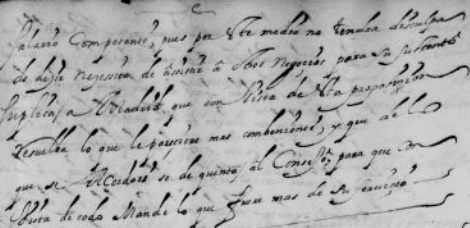 salario Competente, pues por este medio no tendra desculpa
de desir nezessita de asistir a otros negocios para su sustento
suplica a V. que con vista de esta proposizion
Resuelba lo que le pareciere mas combeniente, y que de lo
que se Acordare se de quenta al Consejo para que con
vista de todo Mande lo que fuere mas de su servicio